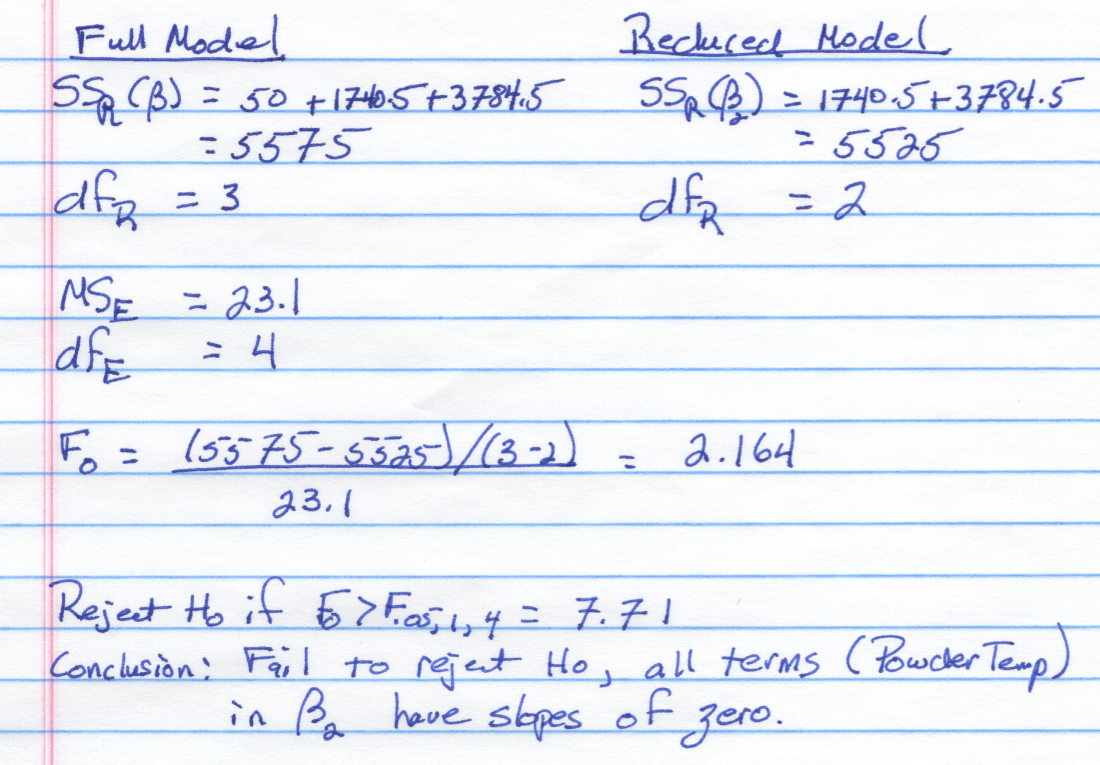 Full Model Reduced Model
SS_R(β) = 50 + 1740.5 + 3784.5 SS_R(β_2) = 1740.5 + 3784.5
= 5575 = 5525
df_R = 3 df_R = 2
MS_E = 23.1
df_E = 4
F_0 = (5575 - 5525)/(3-2) = 2.164
23.1
Reject H_0 if F_0 > F.05,1,4 = 7.71
Conclusion: Fail to reject H_0, all terms (Powder Temp)
in β_2 have slopes of zero.